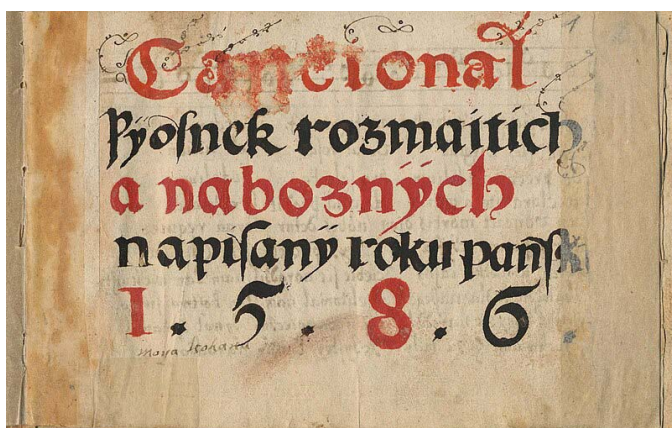 1
Cancional
Pÿoſnek rozmaitich
a nabozných
napiſaný roku panſk
1.5.8.6.
moya